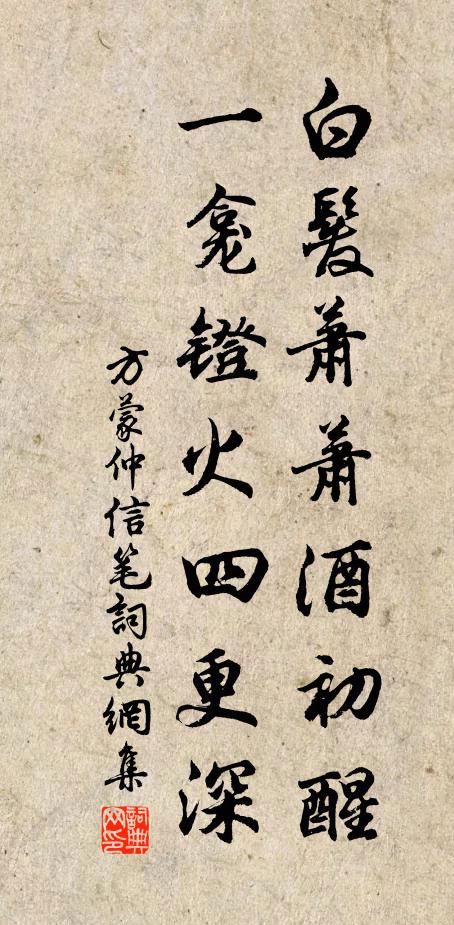 白髮蕭蕭酒初醒
一龕鐙火四更深
方蒙仲信笔詞典網集
詞典网印